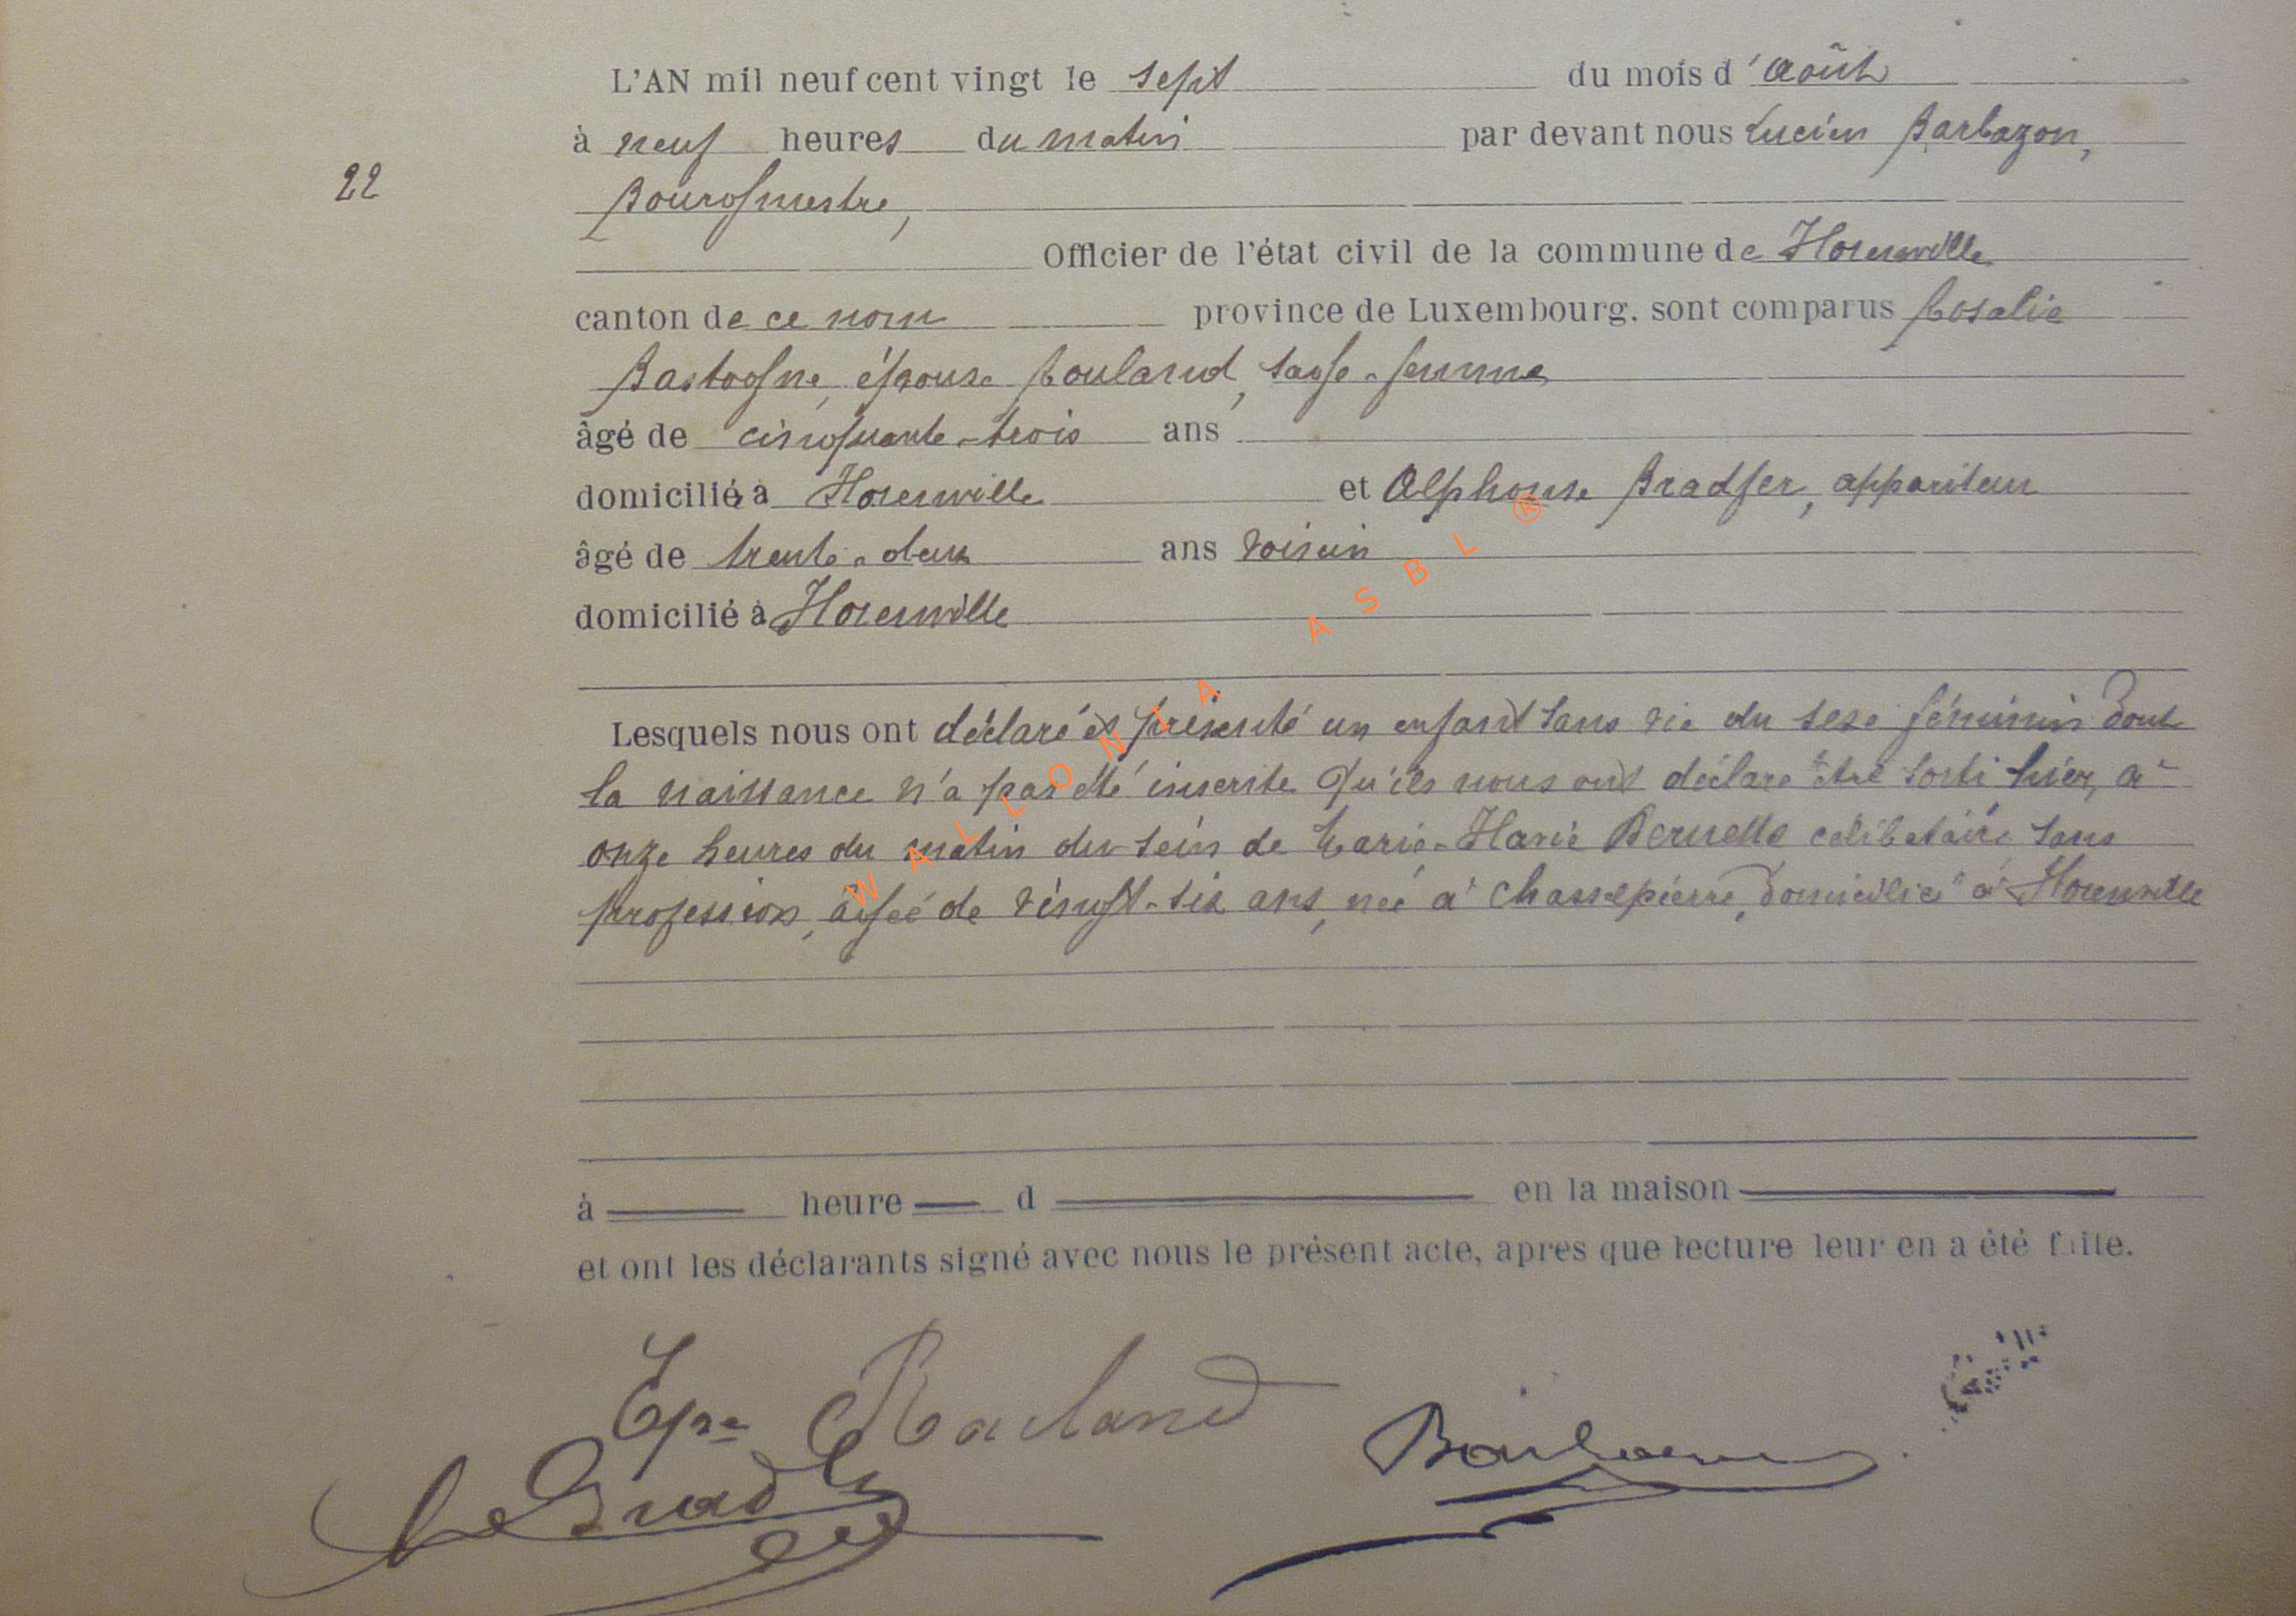 L'AN mil neuf cent vingt le sept du mois d'août
à neuf heures du matin par devant nous Lucien Barbazon,
22
Bourgmestre,
Officier de l'état civil de la commune de Florenville
canton de ce nom province de Luxembourg, sont comparus Rosalie
Bastogne, épouse Rouland, sage-femme
âgé de cinquante-trois ans
domiciliée à Florenville et Alphonse Bradfer, appariteur
âgé de trente-deux ans voisin
domicilié à Florenville
Lesquels nous ont déclaré et présenté un enfant sans vie du sexe féminin dont
la naissance n'a pas été inscrite qu'ils nous ont déclaré être sorti hier, à
onze heures du matin du sein de Marie Bernelle célibataire sans
profession, âgée de vingt-six ans, née à Chassepierre, domiciliée à Florenville
à heure d en la maison
et ont les déclarants signé avec nous le présent acte, après que lecture leur en a été faite.
Epse Rouland
Bradfer
Barbazon
WALLONIA ASBL ®